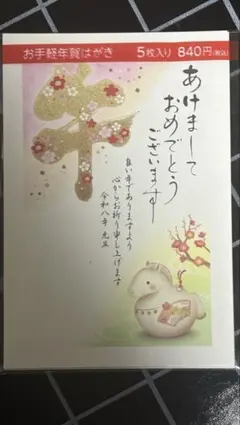 お手軽年賀はがき　5枚入り　840円(税込)
午
あけまして
おめでとう
ございます
良い年でありますよう
心からお祈り申し上げます
令和八年 元旦